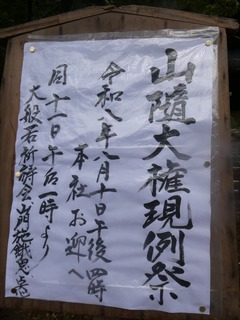 山随大権現例祭
令和八年八月十日午後四時
本社お迎へ
同十一日午后一時より
大般若祈祷会